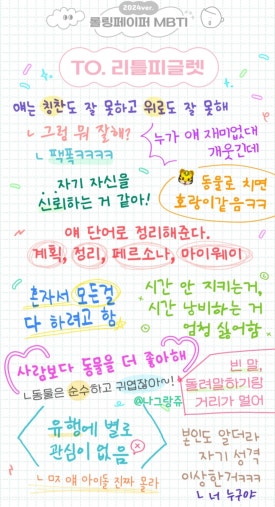 2024ver.
롤링페이퍼 MBTI
TO. 리틀피글렛
얘는 칭찬도 잘 못하고 위로도 잘 못해
ㄴ 그럼 뭐 잘해?
ㄴ 팩폭ㅋㅋㅋㅋ
누가 얘 재미없대
개웃긴데
...자기 자신을
신뢰하는 거 같아!
동물로 치면
호랑이같음ㅋㅋ
얘 단어로 정리해준다.
계획, 정리, 페르소나, 마이웨이
혼자서 모든걸
다 하려고 함
시간 안 지키는거,
시간 낭비하는 거
엄청 싫어함
사람보다 동물을 더 좋아해
ㄴ동물은 순수하고 귀엽잖아~!
@나그랑쥬
빈 말,
돌려말하기랑
거리가 멀어
유행에 별로
관심이 없음
ㄴ ㅁㅈ 얘 아이돌 진짜 몰라
본인도 알더라
자기 성격
이상한거ㅋㅋㅋ
ㄴ 너 누구야